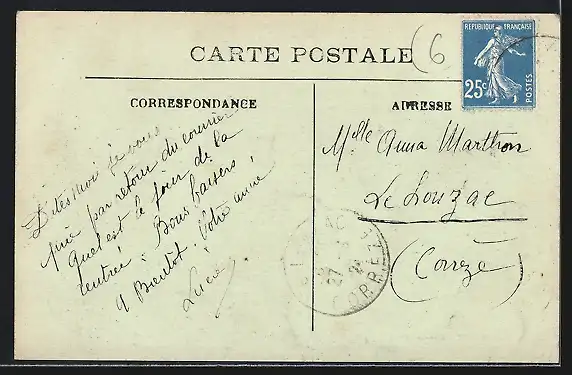 CARTE POSTALE
(6
REPUBLIQUE FRANÇAISE
25c
POSTES
CORRESPONDANCE
ADRESSE
Dites moi je vous
prie par retour du courrier
quel est le jour de la
rentrée. Bons baisers
à Bientôt. Votre amie
Lucie
Mlle Anna Marthon
Le Louzac
(Corrèze)
AC
27
CORREZE